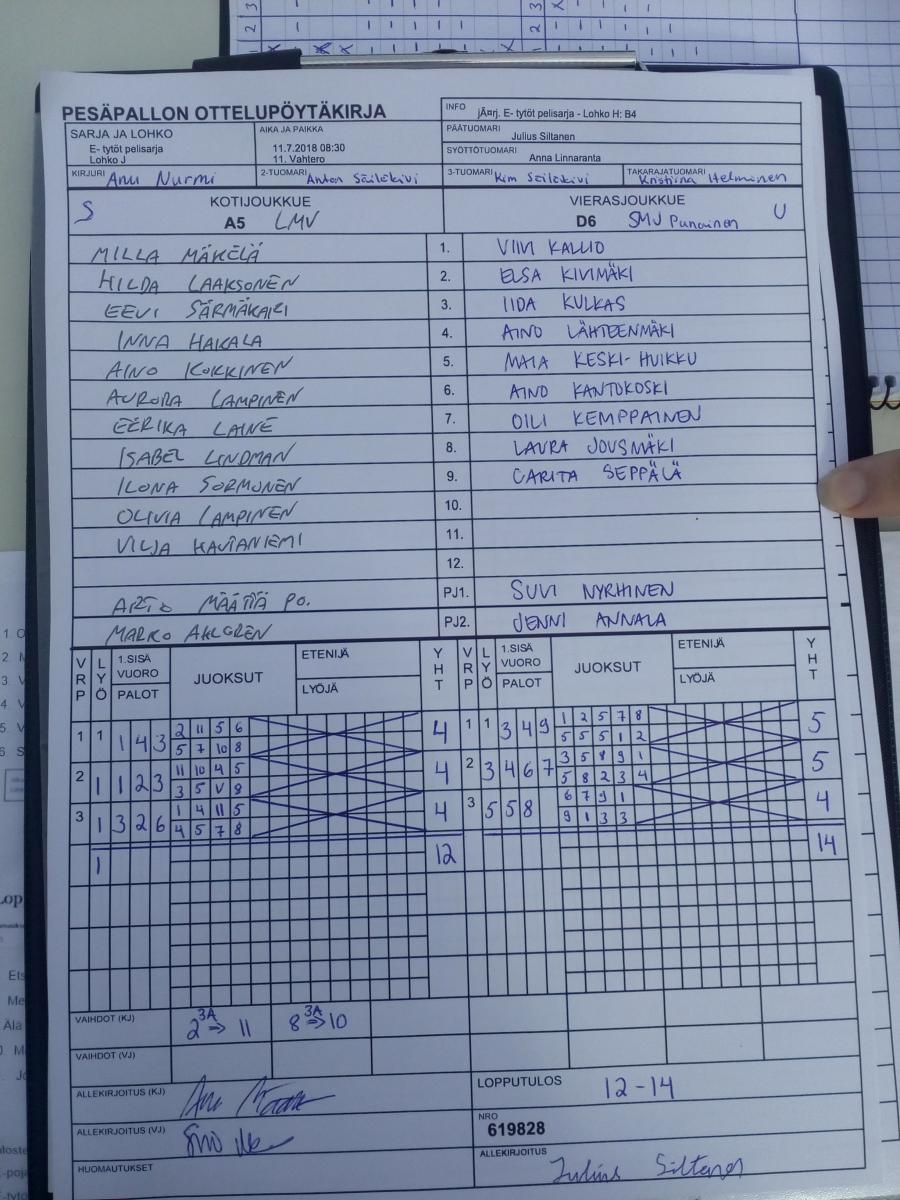 PESÄPALLON OTTELUPÖYTÄKIRJA
INFO jÃ¤rj. E- tytöt pelisarja - Lohko H: B4
SARJA JA LOHKO
E- tytöt pelisarja
Lohko J
AIKA JA PAIKKA
11.7.2018 08:30
11. Vahtero
PÄÄTUOMARI
Julius Siltanen
SYÖTTÖTUOMARI
Anna Linnaranta
KIRJURI Anu Nurmi 2-TUOMARI Anton Säiläkivi 3-TUOMARI Kim Säiläkivi TAKARAJATUOMARI Kristiina Helminen
S KOTIJOUKKUE VIERASJOUKKUE U
A5 LMV D6 SMJ Punainen
MILLA MÄKELÄ 1. VIIVI KALLIO
HILDA LAAKSONEN 2. ELSA KIVIMÄKI
EEVI SÄRMÄKARI 3. IIDA KULKAS
INNA HAKALA 4. AINO LÄHTEENMÄKI
AINO KOKKINEN 5. MAIA KESKI-HUIKKU
AURORA LAMPINEN 6. AINO KANTOKOSKI
EERIKA LAINE 7. OILI KEMPPAINEN
ISABEL LINDMAN 8. LAURA JOUSMÄKI
ILONA SORMUNEN 9. CARITA SEPPÄLÄ
OLIVIA LAMPINEN 10.
VILJA KAVIANIEMI 11.
12.
ARTO MÄÄTTÄ PO. PJ1. SUVI NYRHINEN
MARKO AHLGREN PJ2. JENNI ANNALA
VRP LYÖ 1.SISÄ VUORO PALOT JUOKSUT ETENIJÄ LYÖJÄ YHT VRP LYÖ 1.SISÄ VUORO PALOT JUOKSUT ETENIJÄ LYÖJÄ YHT
1 1 1 4 3 2 11 5 6 4 1 1 3 4 9 1 2 5 7 8 5
5 7 10 8 5 5 5 1 2
2 1 1 2 3 11 10 4 5 4 2 3 4 6 7 3 5 8 9 1 5
3 5 V 8 5 8 2 3 4
3 1 3 2 6 1 4 11 5 4 3 5 5 8 6 7 9 1 4
4 5 7 8 9 1 3 3
1 12 14
VAIHDOT (KJ) 2 3A ⇒ 11 8 3A ⇒ 10
VAIHDOT (VJ)
ALLEKIRJOITUS (KJ)
LOPPUTULOS 12-14
ALLEKIRJOITUS (VJ)
NRO
619828
HUOMAUTUKSET
ALLEKIRJOITUS
Julius Siltanen